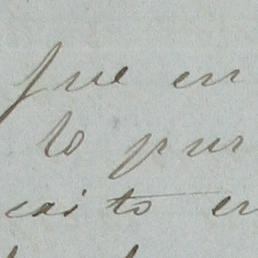 fue en
lo pur
caito en